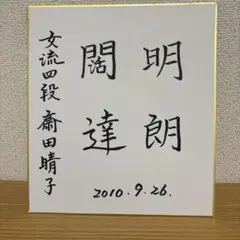 明朗
闊達
女流四段 齋田晴子
2010.9.26.